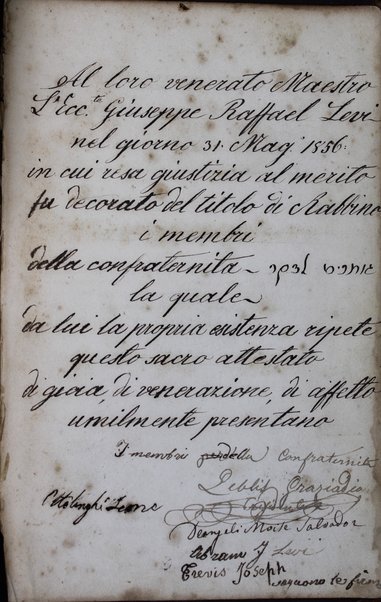 Al loro venerato Maestro
L'Ecc.te Giuseppe Raffael Levi
nel giorno 31. Mag. 1856.
in cui resa giustizia al merito
fu decorato del titolo di Rabbino
i membri
della confraternita
la quale
da lui la propria esistenza ripete
questo sacro attestato
di gioia, di venerazione, di affetto
umilmente presentano
I membri della Confraternita
Graziadio
Ottolenghi Leone
Deangeli Moise Salvador
Abram J Levi
Treves Joseph
seguono le firme